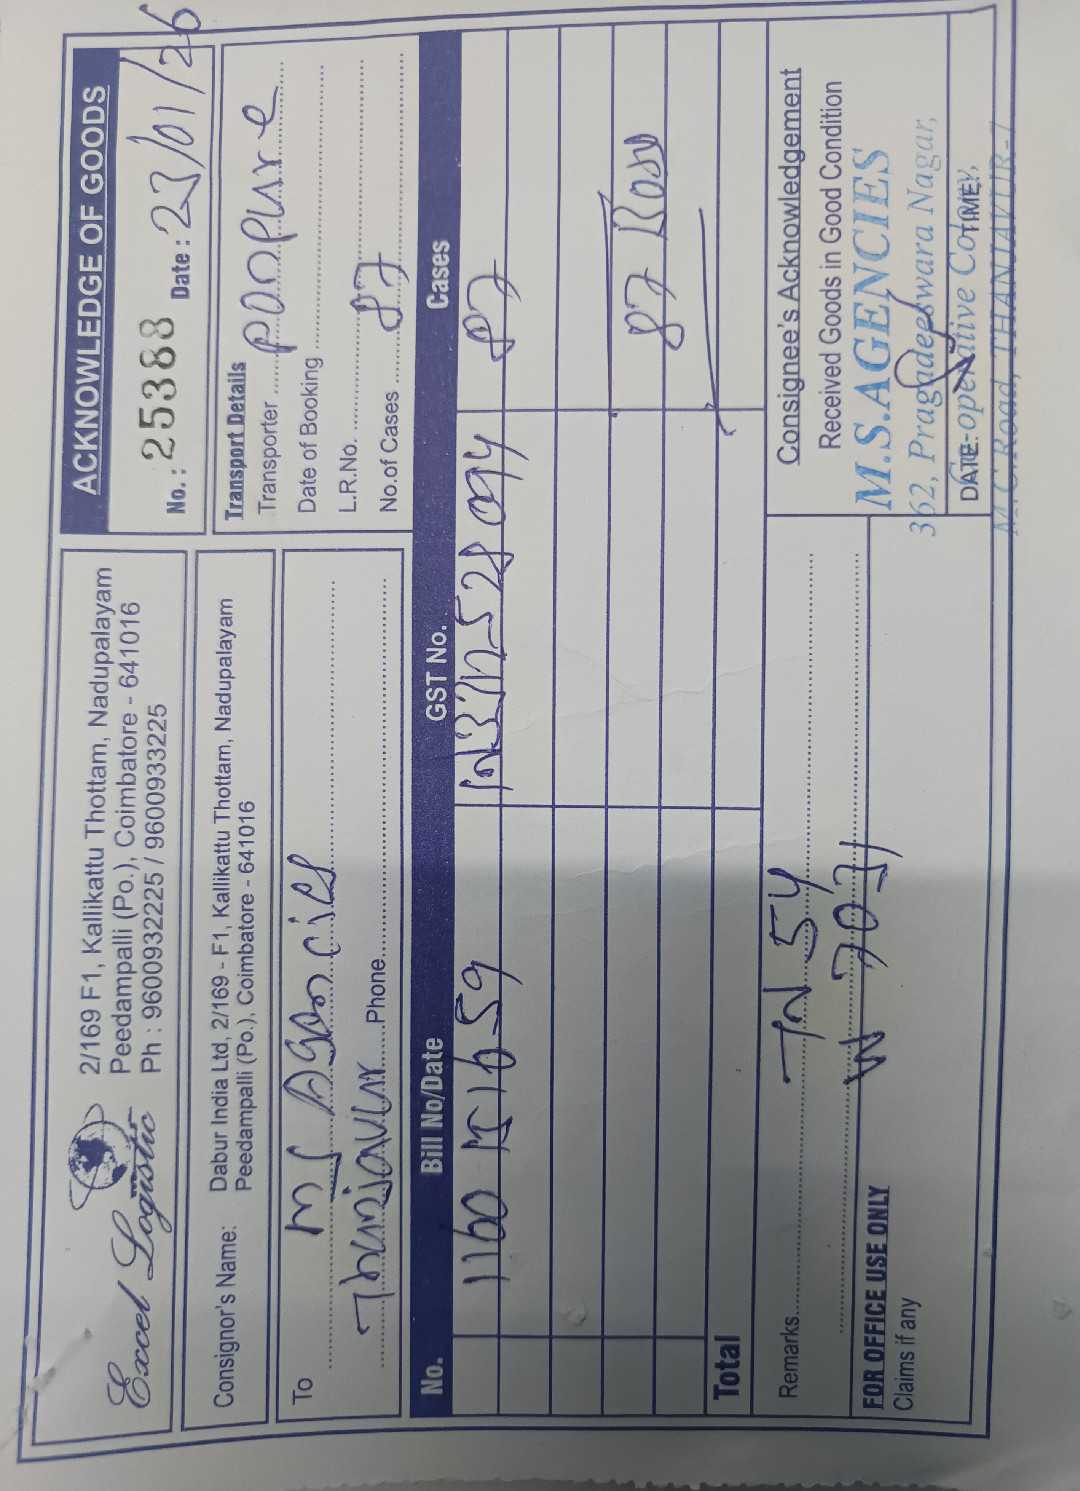 Excel Logistic
2/169 F1, Kallikattu Thottam, Nadupalayam
Peedampalli (Po.), Coimbatore - 641016
Ph : 9600932225 / 9600933225
ACKNOWLEDGE OF GOODS
No. : 25388 Date : 23/01/26
Consignor's Name: Dabur India Ltd, 2/169 - F1, Kallikattu Thottam, Nadupalayam
Peedampalli (Po.), Coimbatore - 641016
Transport Details
Transporter
Date of Booking
L.R.No.
No.of Cases 87
To MS Agencies
Thanjavur Phone
No. Bill No/Date GST No. Cases
87
87
Total
Remarks TN 54
W 7031
FOR OFFICE USE ONLY
Claims if any
Consignee's Acknowledgement
Received Goods in Good Condition
M.S.AGENCIES
362, Pragadeeswara Nagar,
Co-operative Colony,
M.C.Road, THANJAVUR-7
DATE: TIME: